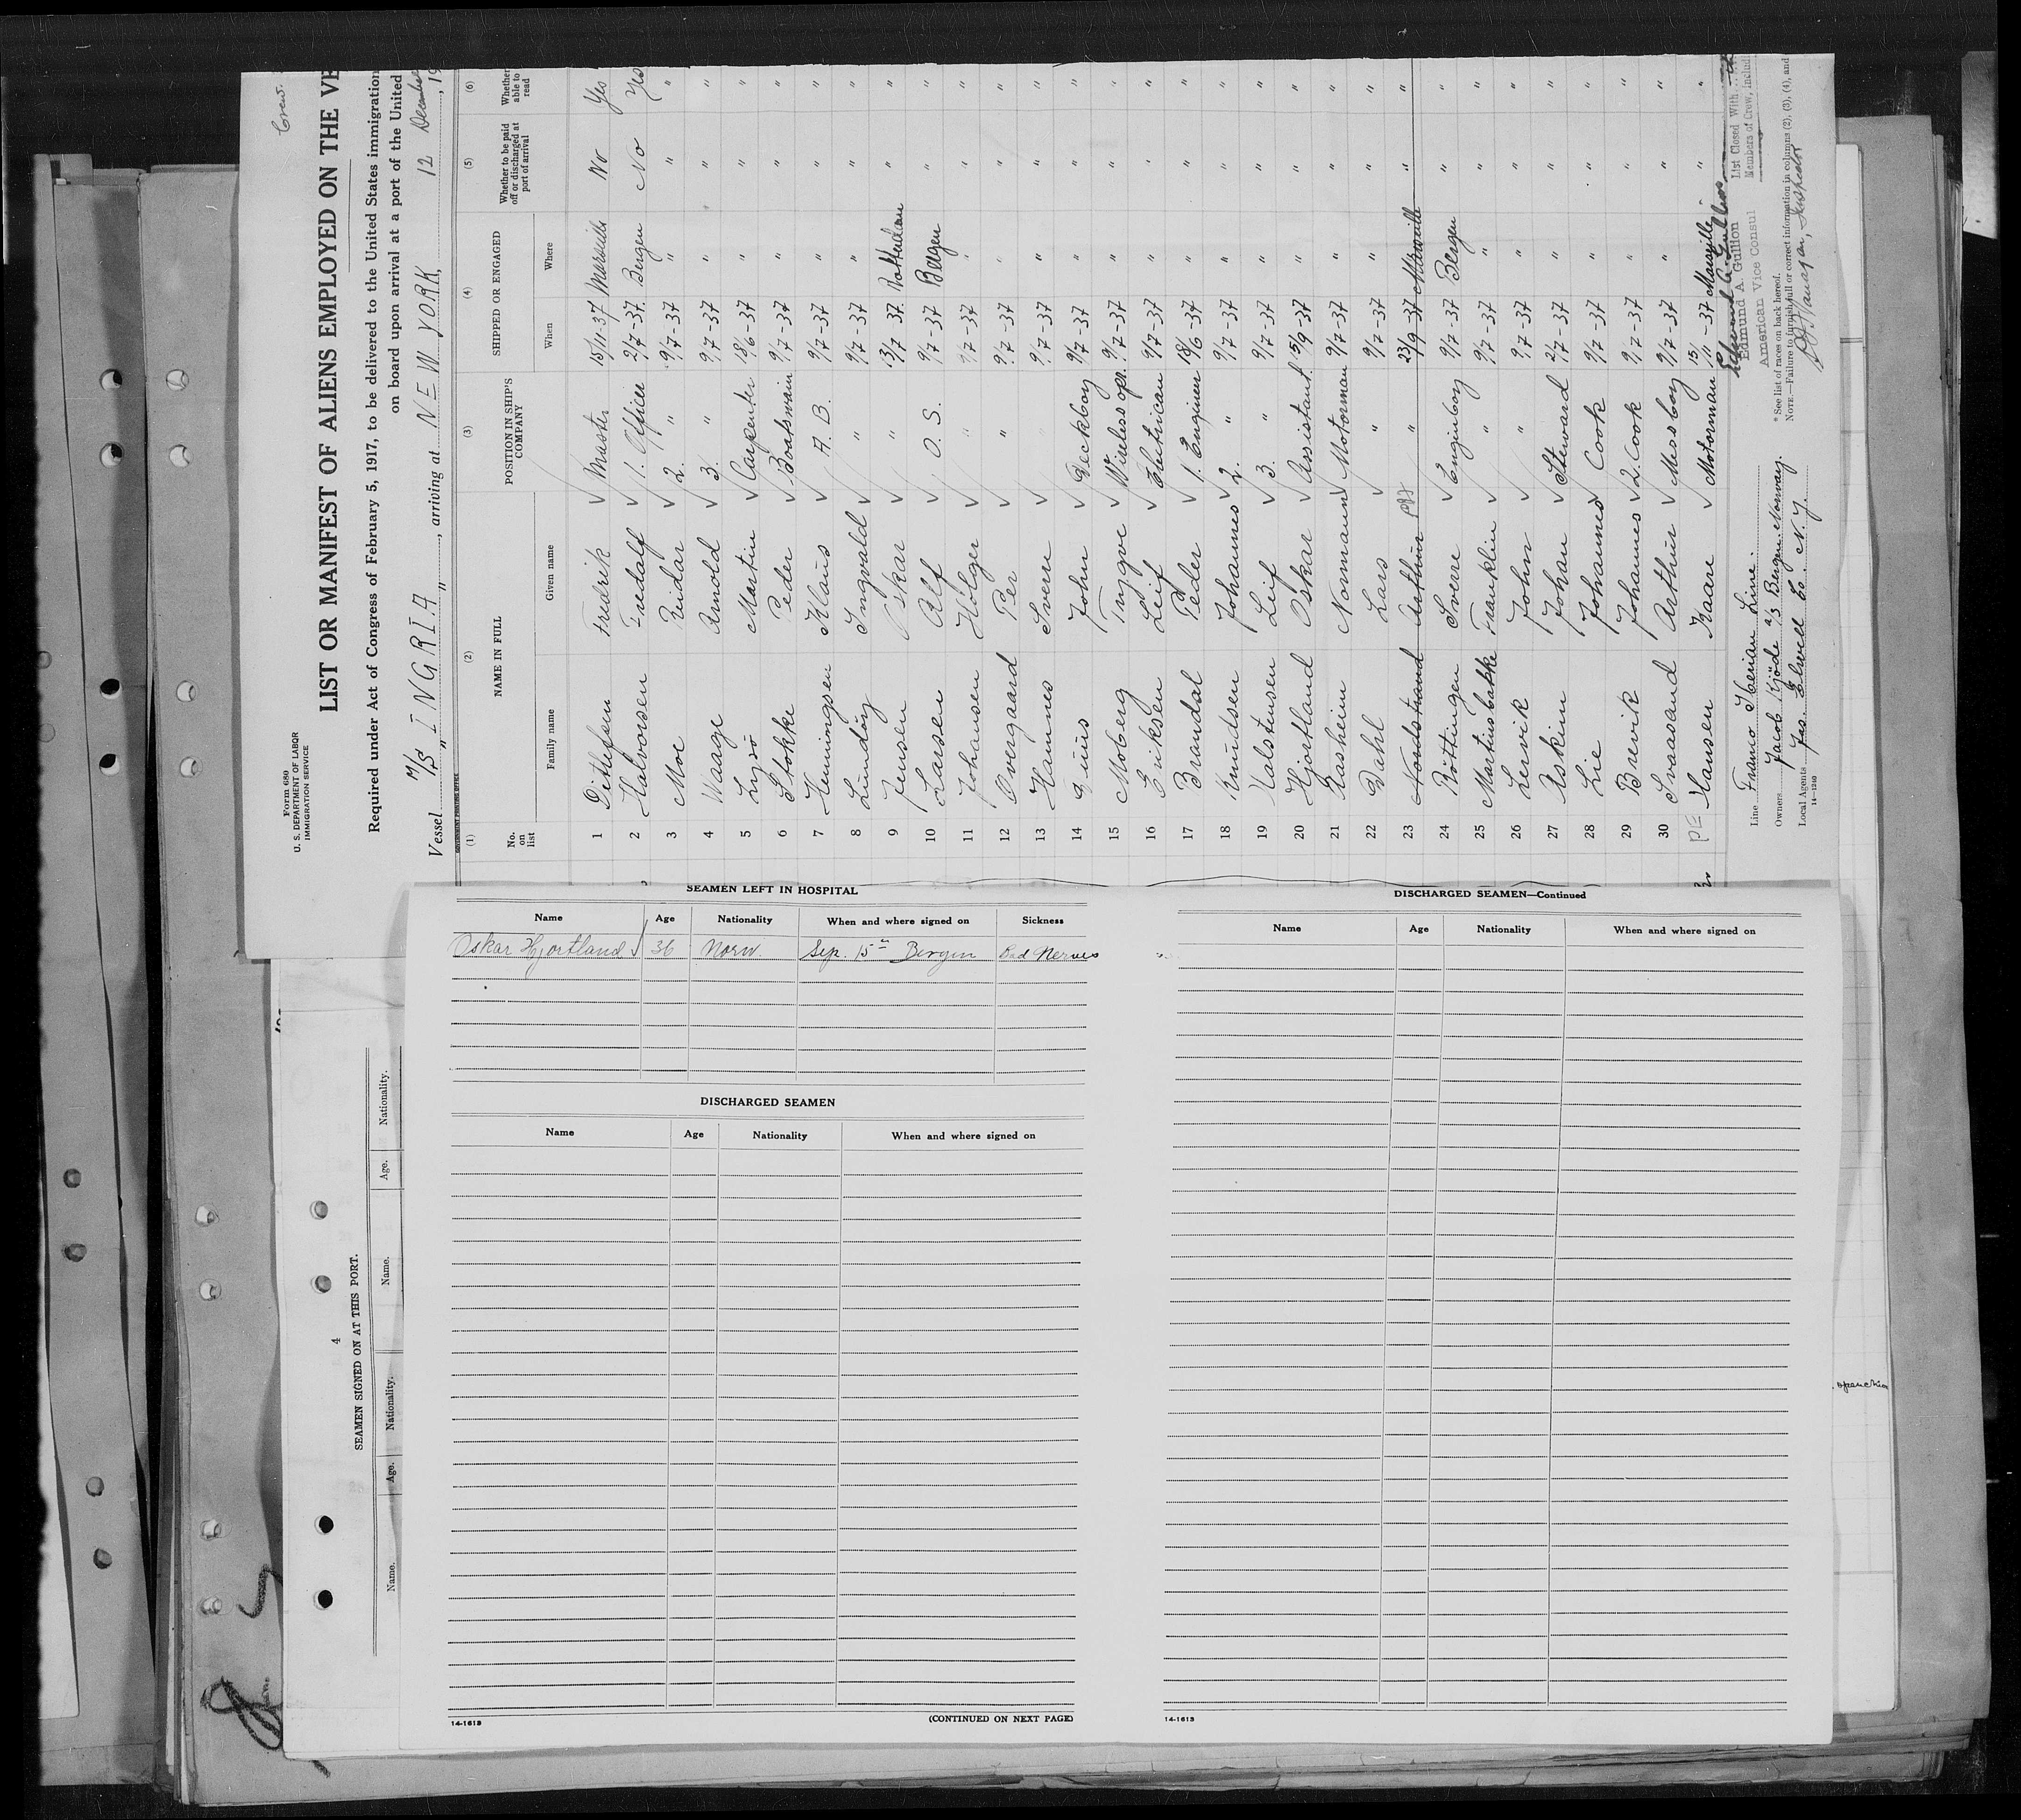 Form 680
U. S. DEPARTMENT OF LABOR
IMMIGRATION SERVICE
Crew.
LIST OR MANIFEST OF ALIENS EMPLOYED ON THE VE
Required under Act of Congress of February 5, 1917, to be delivered to the United States immigration
on board upon arrival at a port of the United
Vessel M/S „INGRIA", arriving at NEW YORK, 12 December, 19
(1) (2) (3) (4) (5) (6)
No. on list NAME IN FULL Family name Given name POSITION IN SHIP'S COMPANY SHIPPED OR ENGAGED When Where Whether to be paid off or discharged at port of arrival Whether able to read
1 Ditlefsen Fredrik √ Master 15/11 37 Marseille No Yes
2 Halvorsen Fredalf √ 1. Officer 2/7-37. Bergen No Yes
3 Moe Reidar √ 2. " 9/7-37 " " "
4 Waage Arnold √ 3. " 9/7-37 " " "
5 Lysö Martin √ Carpenter 18/6-37 " " "
6 Stokke Peder √ Boatswain 9/7-37 " " "
7 Henningsen Klaus √ A. B. 9/7-37 " " "
8 Lundöy Ingvald √ " 9/7-37 " " "
9 Jensen Oskar √ " 13/7 37. Rotterdam " "
10 Larsen Alf √ O. S. 9/7-37 Bergen " "
11 Johansen Holger √ " 9/7-37 " " "
12 Overgaard Per √ " 9/7-37 " " "
13 Hannus Sverre √ " 9/7-37 " " "
14 John √ Deckboy 9/7-37 " " "
15 Moberg Tryggve √ Wireless opr. 9/7-37 " " "
16 Eriksen Leif √ Electrican 9/7-37 " " "
17 Brandal Peder √ 1. Enginer 18/6-37 " " "
18 Knudsen Johannes √ 2. " 9/7-37 " " "
19 Halstensen Leif √ 3. " 9/7-37 " " "
20 Hjortland Oskar √ Assistant. 15/9-37 " " "
21 Aasheim Normann √ Motorman 9/7-37 " " "
22 Dahl Lars √ " 9/7-37 " " "
23 Nordstrand Arthur " 23/9-37 Marseille " "
24 Röttingen Sverre √ Enginboy 9/7-37 Bergen " "
25 Martinsbakke Franklin √ " 9/7-37 " " "
26 Lervik John √ " 9/7-37 " " "
27 Askim Johan √ Steward 2/7-37 " " "
28 Lie Johannes √ Cook 9/7-37 " " "
29 Brevik Johannes √ 2. Cook 9/7-37 " " "
30 Svaasand Arthur √ Messboy 9/7-37 " " "
Hansen Kaare √ Motorman 15/11-37 Marseille " "
Line Franco Iberian Line.
Owners Jacob Kjöde A/S Bergen. Norway.
Local Agents Jas. Elwell Co. N. Y.
14-1240
Edmund A. Gullion
Edmund A. Gullion
American Vice Consul
List Closed With
Members of Crew, Includi
* See list of races on back hereof.
NOTE.—Failure to furnish full or correct information in columns (2), (3), (4), and
Inspector
SEAMEN LEFT IN HOSPITAL
Name Age Nationality When and where signed on Sickness
Oskar Hjortland √ 36 Norw. Sep. 15th Bergen Bad Nerves
DISCHARGED SEAMEN
Name Age Nationality When and where signed on
14-1613
(CONTINUED ON NEXT PAGE)
DISCHARGED SEAMEN—Continued
Name Age Nationality When and where signed on
14-1613
4
SEAMEN SIGNED ON AT THIS PORT.
Name. Age. Nationality. Name. Age. Nationality.